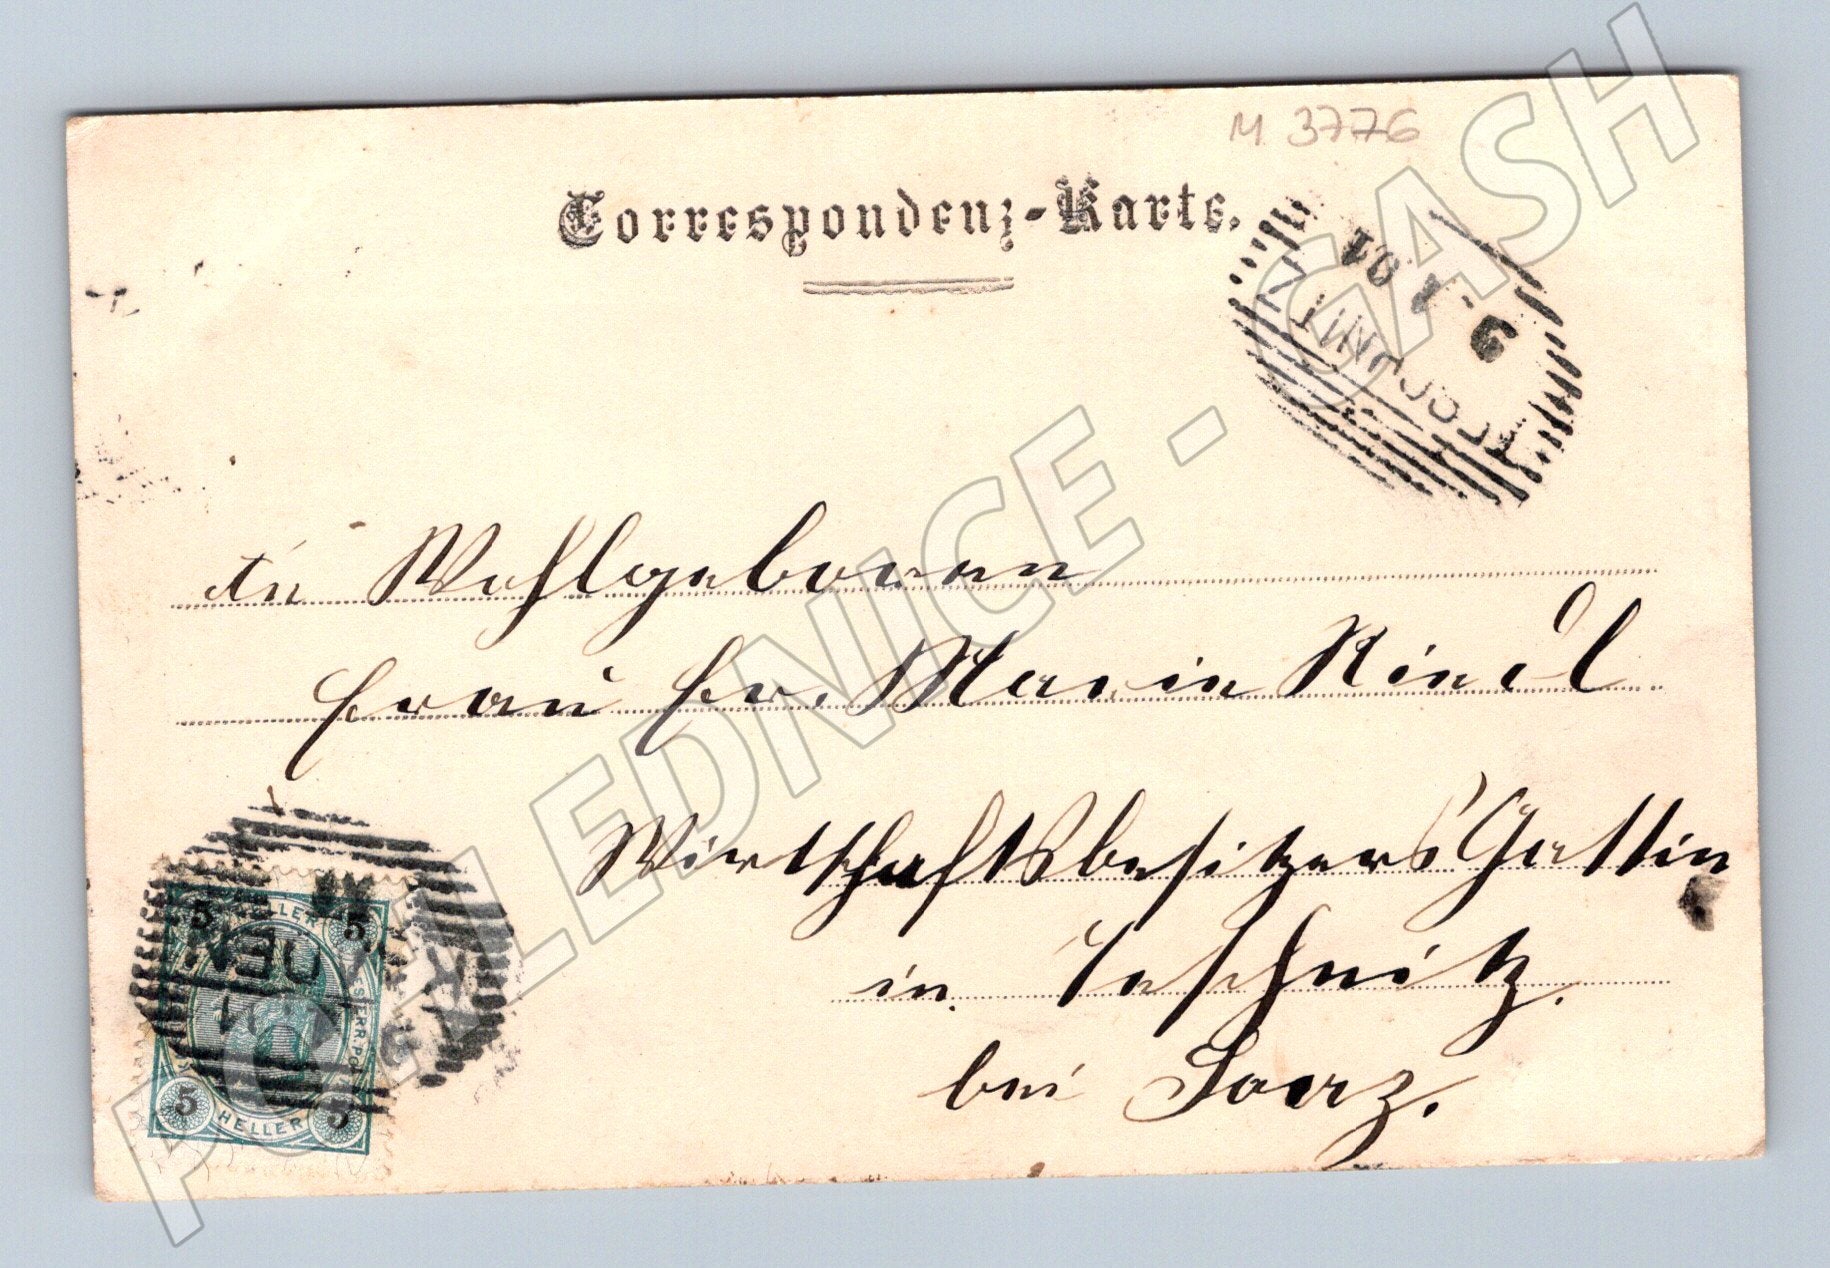 M 3776
Correspondenz-Karte.
9. 1. 01
An Wohlgeboren
Frau Fr. Marie Riedl
Wirthschaftsbesitzers Gattin
in
bei
5 HELLER 5
5 HELLER 5
POHLEDNICE - CASH